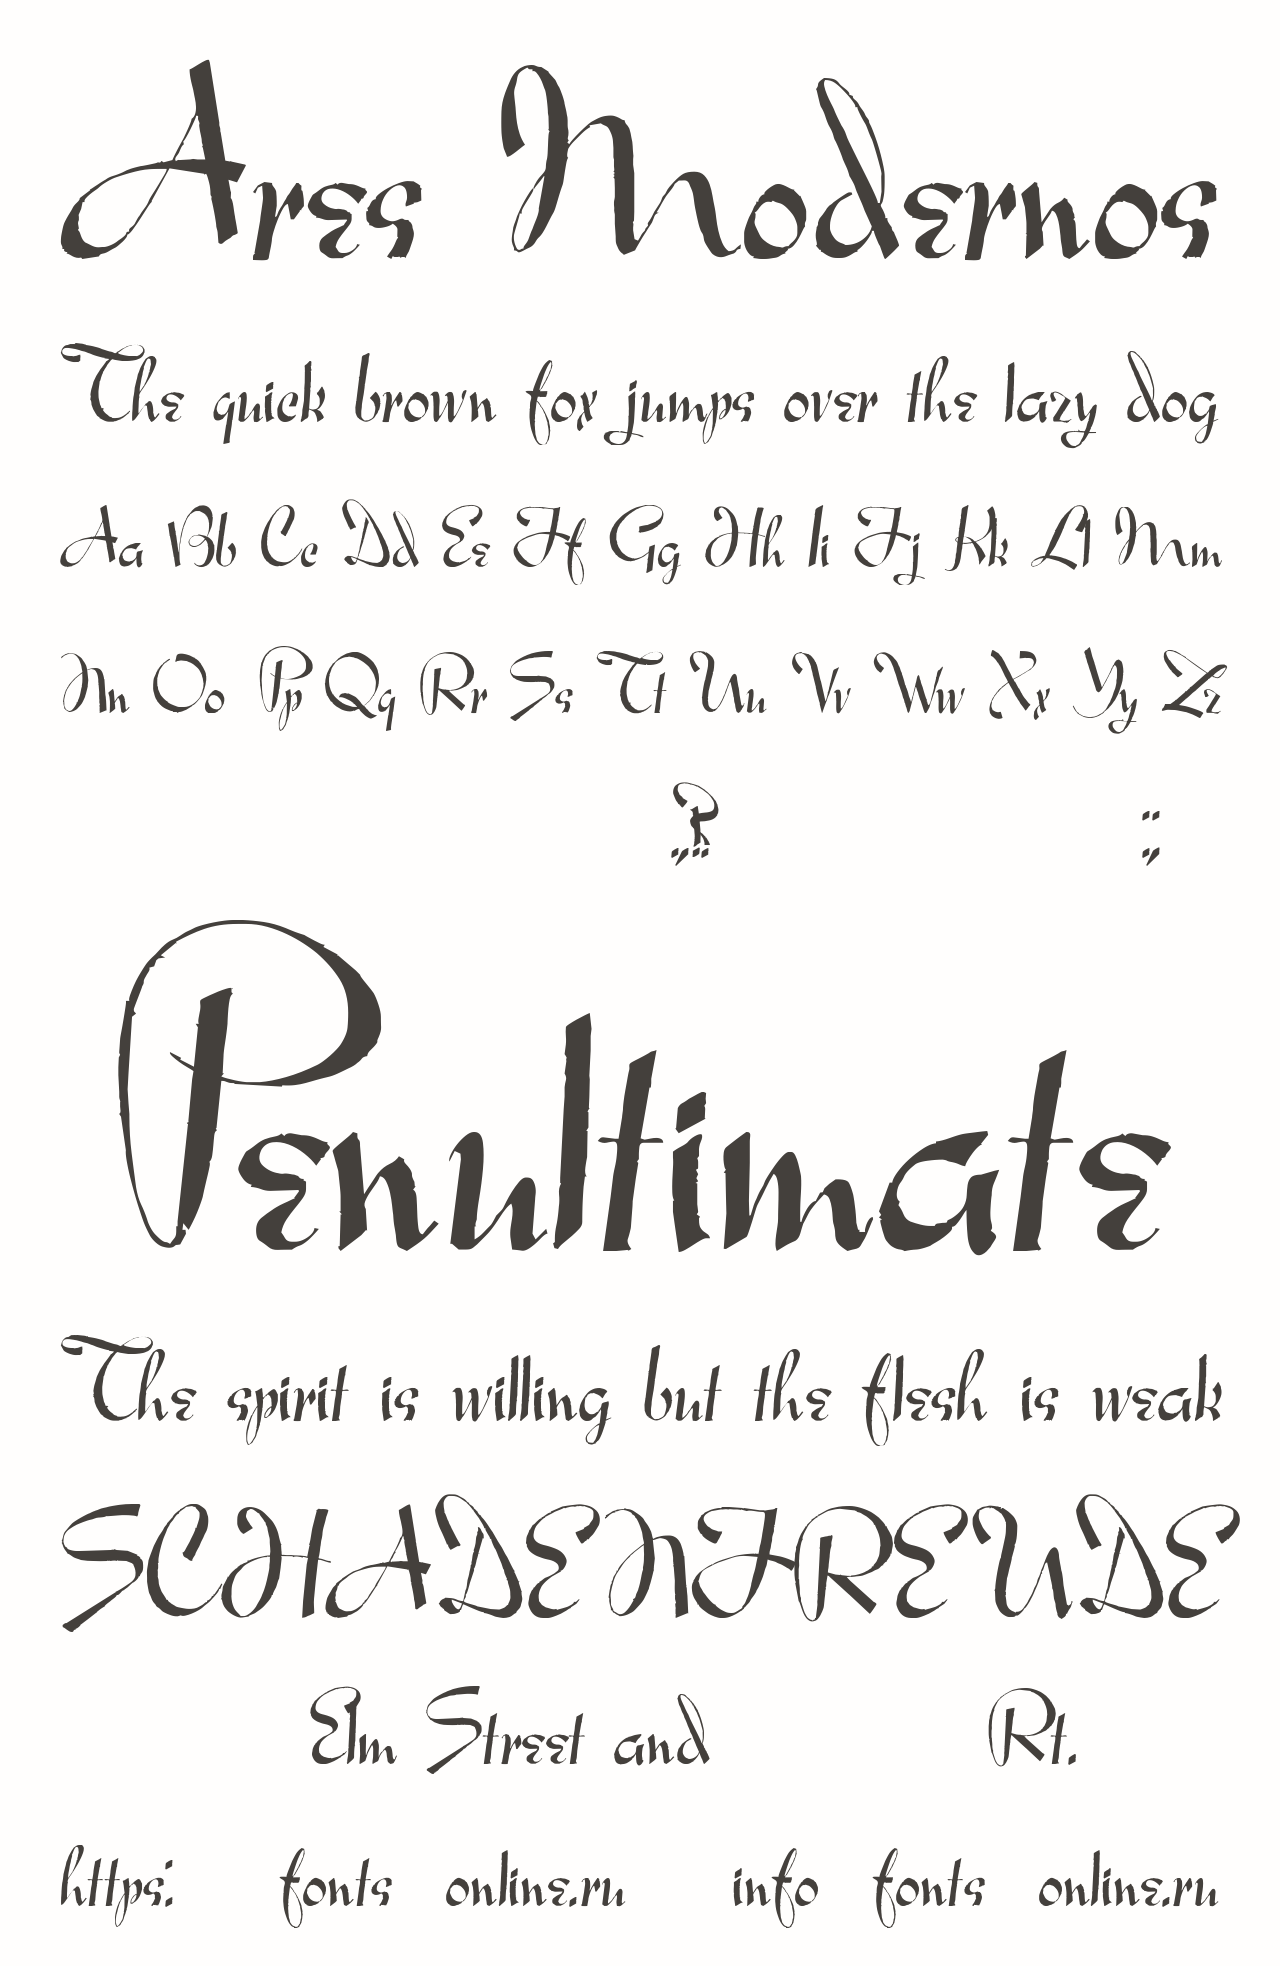 Ares Modernos
The quick brown fox jumps over the lazy dog
Aa Bb Cc Dd Ee Ff Gg Hh Ii Jj Kk Ll Mm
Nn Oo Pp Qq Rr Ss Tt Uu Vv Ww Xx Yy Zz
Penultimate
The spirit is willing but the flesh is weak
SCHADENFREUDE
Elm Street and Rt.
https: fonts online.ru info fonts online.ru